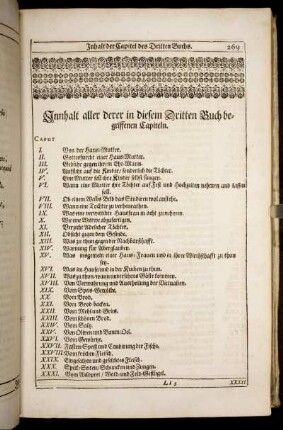 Inhalt der Capitel des Dritten Buchs. 269
Innhalt aller derer in diesem Dritten Buch be-
griffenen Capiteln.
CAPUT
I. Von der Haus-Mutter.
II. Gottesfurcht einer Haus-Mutter.
III. Gebühr gegen ihren Ehe-Mann.
IV. Aufsicht auf die Kinder/ sonderlich die Töchter.
V. Eine Mutter soll ihre Kinder selbst säugen.
VI. Wann eine Mutter ihre Töchter auf Fest und Hochzeiten nehmen und lassen
soll.
VII. Ob einem Weibs-Bild das Studiren wol anstehe.
VIII. Wann eine Tochter zu verheurathen.
IX. Was eine verwittibte Hausfrau in acht zu nehmen.
X. Wie eine Wittwe
XI. Verzicht Adelicher Töchter.
XII. Obsicht gegen dem Gesinde.
XIII. Was zu thun gegen der Nachbarschafft.
XIV. Warnung für Aberglauben.
XV. Was insgemein einer Haus-Frauen und in ihrer Wirthschafft zu thun
sey.
XVI. Was im Hause und in der Kuchen zu thun.
XVII. Was zu thun/ wann man etlichen Gäste
XVIII. Von Verwahrung und Austheilung der Victualien.
XIX. Vom Speis-Gewölbe.
XX. Vom Brod.
XXI. Vom Brod bachen.
XXII. Von Mehl und Gries.
XXIII. Von schönem Brod.
XXIV. Vom Saltz.
XXV. Von Oliven und Baum-Oel.
XXVI. Von Gewürtz.
XXVII. Fasten-Speis und der Fische.
XXVIII. Von frischen Fleisch.
XXIX. Eingesaltzen und geselchtes Fleisch.
XXX. Speck-Seiten/ Schuncken und Zungen.
XXXI. Vom Wildpret/ Wald- und Feld-Geflügel.
XXXII